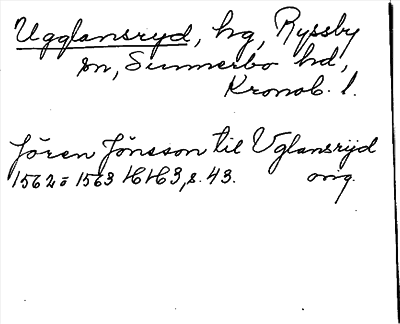 Ugglansryd, hg, Ryssby
sn, Sunnerbo hd,
Kronob. l.
Jören Jönsson til Vglansrÿd
1562 ō 1563 HH3, s. 43. orig.